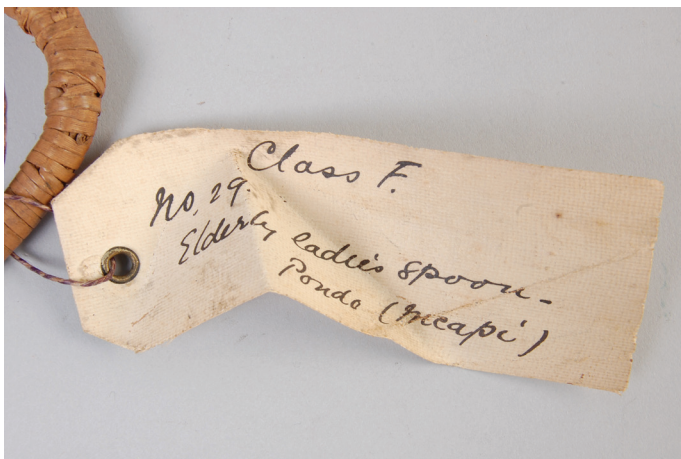 Class F.
No. 29.
Elderly ladies spoon.
Pondo (Mcapi)